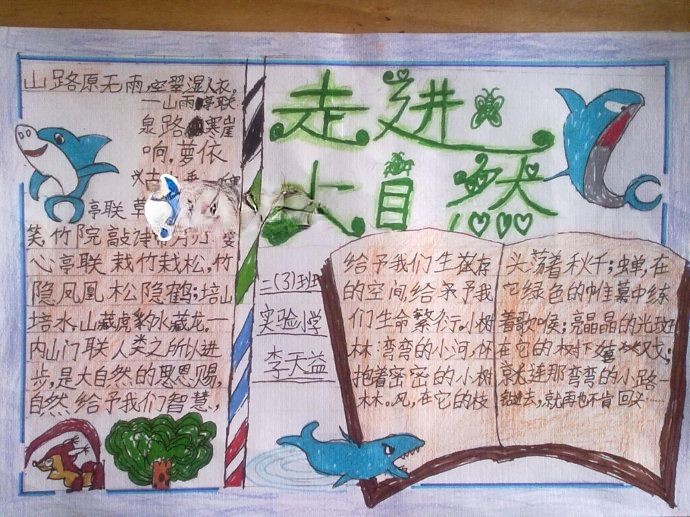 走进
大自然
山路原无雨,空翠湿人衣。
一山雨亭联
泉路 寒崖
响,萝依
古
亭联草
笑,竹院敲
心亭联栽竹栽松,竹
隐凤凰松隐鹤;培山
培水,山藏虎豹水藏龙。一
内山门联人类之所以进
步,是大自然的恩赐,
自然给予我们智慧,
二(3)班
实验小学
李天益
给予我们生存
的空间,给予我
们生命繁衍。小树
林,弯弯的小河,怀
抱着密密的小树
林。风,在它的枝
头荡着秋千;蝉,在
它绿色的帷幕中练
着歌喉;亮晶晶的光斑
在它的树下
就连那弯弯的小路一
进去,就再也不肯回头……